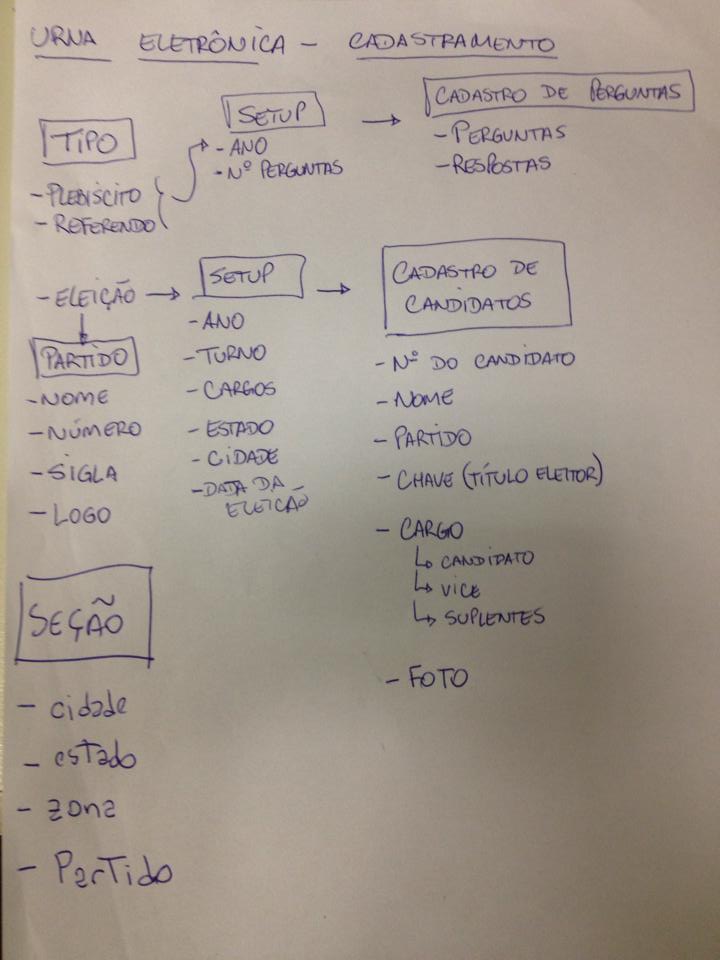 URNA ELETRÔNICA - CADASTRAMENTO
TIPO
- PLEBISCITO
- REFERENDO
SETUP
- ANO
- Nº PERGUNTAS
CADASTRO DE PERGUNTAS
- PERGUNTAS
- RESPOSTAS
- ELEIÇÃO
SETUP
- ANO
- TURNO
- CARGOS
- ESTADO
- CIDADE
- DATA DA
ELEIÇÃO
CADASTRO DE
CANDIDATOS
- Nº DO CANDIDATO
- NOME
- PARTIDO
- CHAVE (TÍTULO ELEITOR)
- CARGO
↳ CANDIDATO
↳ VICE
↳ SUPLENTES
- FOTO
PARTIDO
- NOME
- NÚMERO
- SIGLA
- LOGO
SEÇÃO
- cidade
- estado
- zona
- Partido